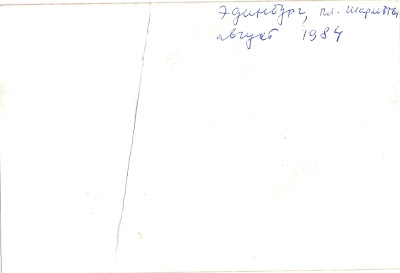 Эдинбург, пл. Шарлотты
август 1984